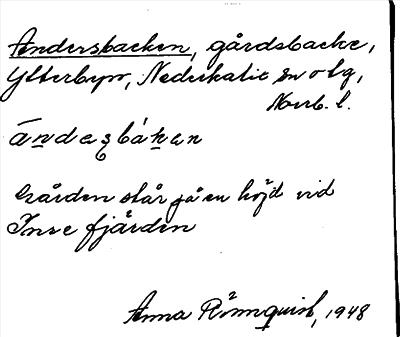 Andersbacken, gårdsbacke,
Ytterbyn, Nederkalix sn o tg,
Norrb. l.
ándeʂbákən
Gården står på en höjd vid
Inre fjärden
Anna Rönnquist, 1948